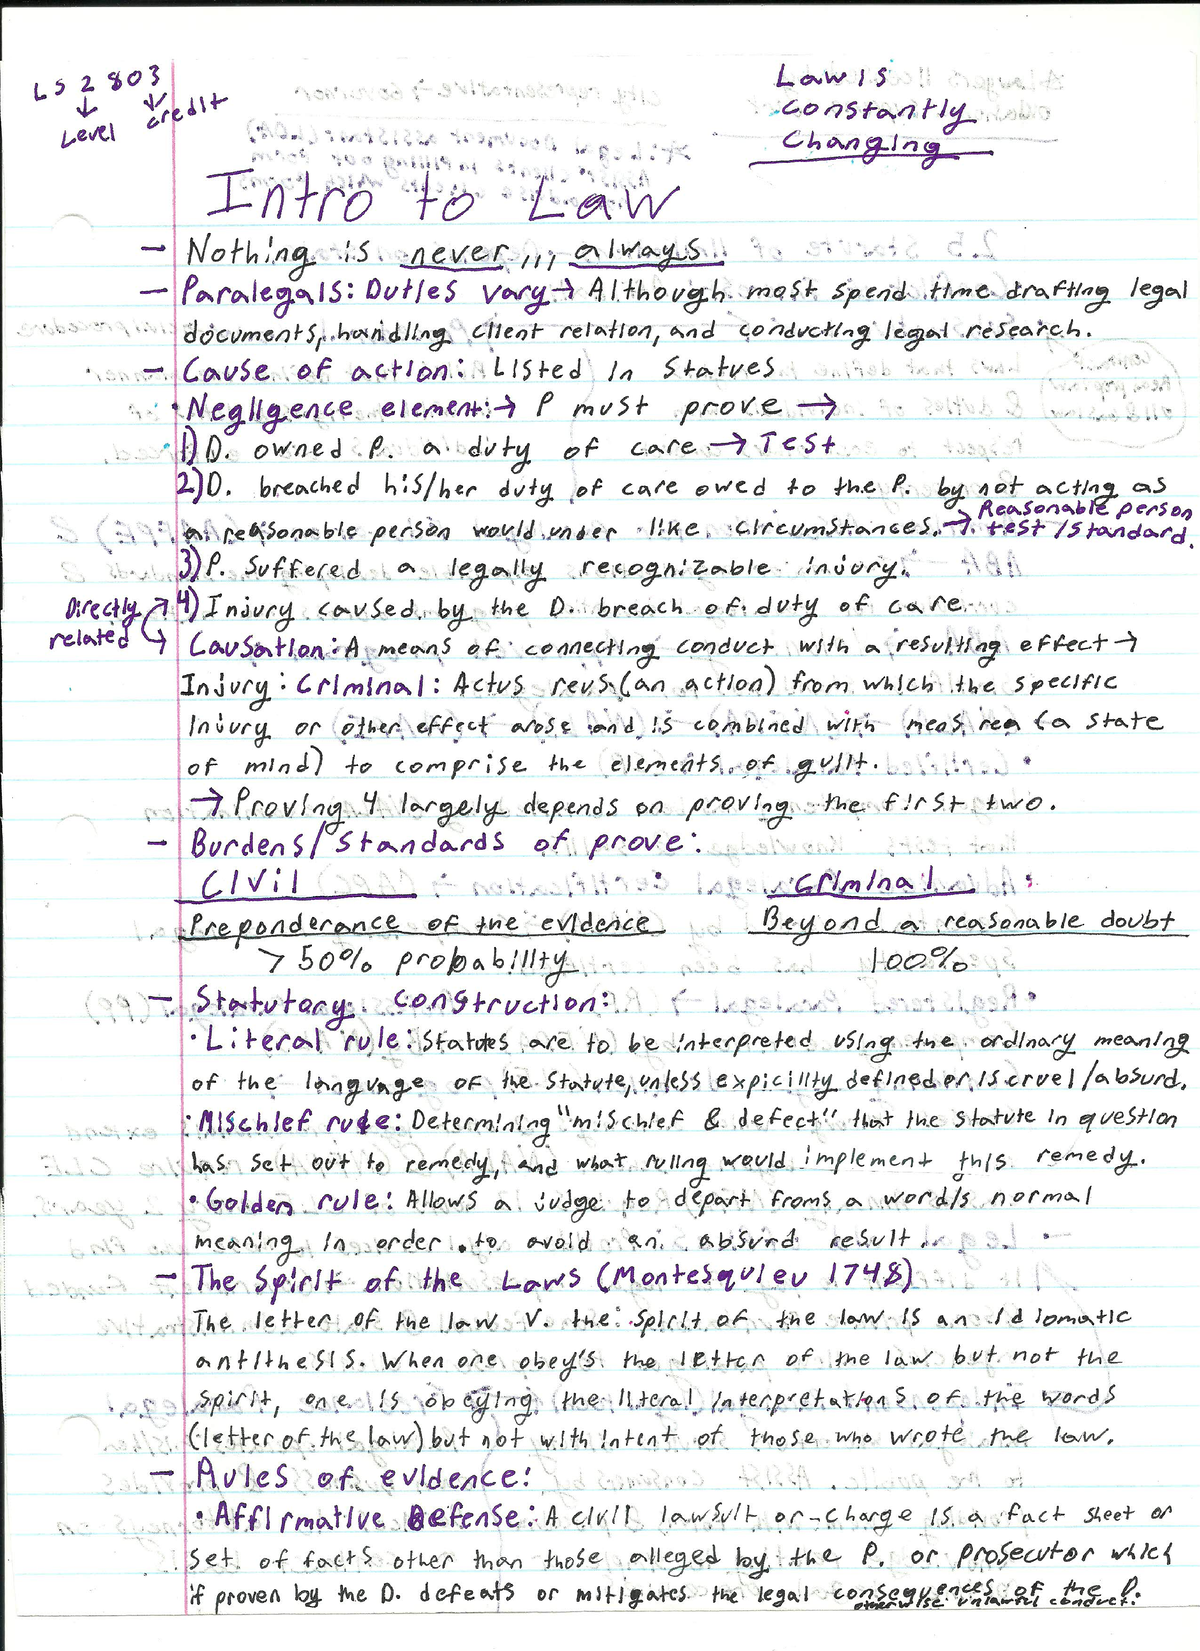 LS 2803
Level
credit
Law is
constantly
Changing
Intro to Law
- Nothing is never,,, always
- Paralegals: Duties vary → Although most spend time drafting legal
documents, handling client relation, and conducting legal research.
- Cause of action: Listed in Statues
• Negligence element: → P must prove →
1) D. owned P. a duty of care → Test
2) D. breached his/her duty of care owed to the P. by not acting as
a reasonable person would under like circumstances. → Reasonable person
test / Standard.
3) P. Suffered a legally recognizable injury.
Directly
related
4) Injury caused by the D. breach of duty of care.
Causation: A means of connecting conduct with a resulting effect →
Injury: Criminal: Actus reus (an action) from which the specific
injury or other effect arose and is combined with mens rea (a state
of mind) to comprise the elements of guilt.
→ Proving 4 largely depends on proving the first two.
- Burdens/Standards of prove:
Civil Criminal
Preponderance of the evidence Beyond a reasonable doubt
> 50% probability 100%
- Statutory construction:
• Literal rule: Statutes are to be interpreted using the ordinary meaning
of the language of the statute, unless expicility defined or is cruel/absurd.
• Mischief rule: Determining "mischief & defect" that the statute in question
has set out to remedy, and what ruling would implement this remedy.
• Golden rule: Allows a judge to depart froms a word/s normal
meaning in order to avoid an absurd result.
- The Spirit of the Laws (Montesquieu 1748)
The letter of the law V. the spirit of the law is an idiomatic
antithesis. When one obey's the letter of the law but not the
spirit, one is obeying the literal interpretations of the words
(letter of the law) but not with intent of those who wrote the law.
- Rules of evidence:
• Affirmative Defense: A civil lawsuit or-charge is a fact sheet or
set of facts other than those alleged by the P. or prosecutor which
if proven by the D. defeats or mitigates the legal consequences of the D.
otherwise unlawful conduct.